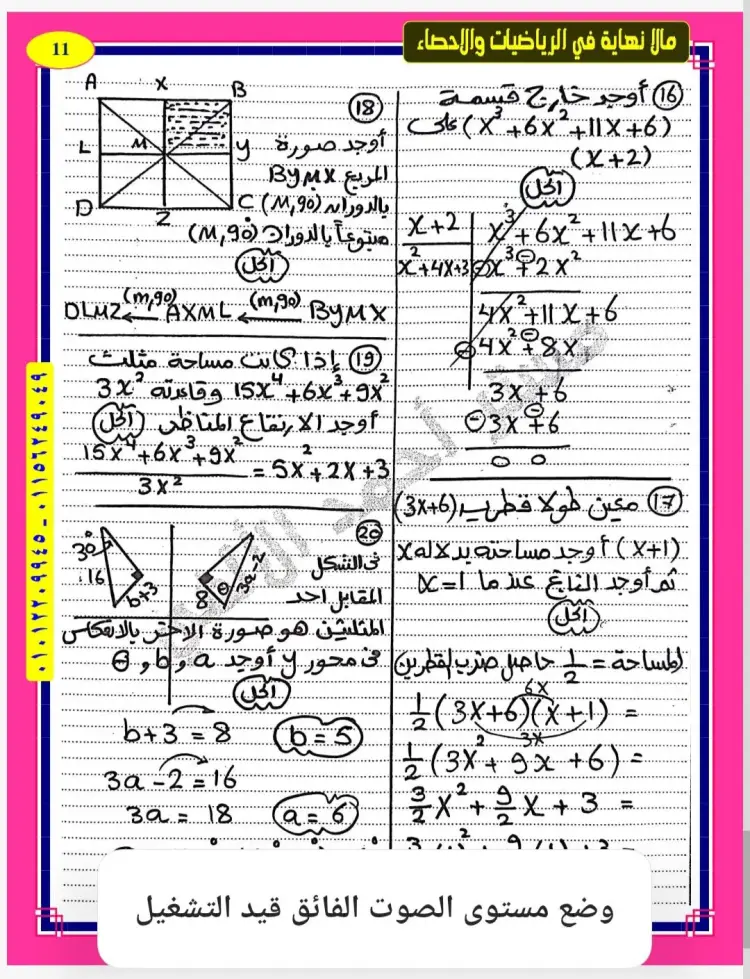 مالا نهاية في الرياضيات والاحصاء
11
(16) أوجد خارج قسمة
(x³+6x²+11x+6) على
(x+2)
الحل
x+2
x³+6x²+11x+6
x²+4x+3
⊖x³+⊖2x²
4x²+11x+6
⊖4x²+⊖8x
3x+6
⊖3x+⊖6
0 0
(17) معين طولا قطريه (3x+6)
(x+1) أوجد مساحته بدلاله x
ثم أوجد الناتج عندما x=1
الحل
المساحة = 1/2 حاصل ضرب القطرين
6x
= 1/2 (3x+6)(x+1)
3x
= 1/2 (3x²+9x+6)
= 3/2 x² + 9/2 x + 3
A X B
L M y
D Z C
(18)
أوجد صورة
المربع BYMX
بالدوران (M,90°)
متبوعاً بالدوران (M,90°)
الحل
DLMZ ←(m,90) AXML ←(m,90) BYMX
(19) إذا كانت مساحة مثلث
15x⁴+6x³+9x² وقاعدته 3x²
أوجد الارتفاع المناظر الحل
15x⁴+6x³+9x² / 3x² = 5x²+2x+3
(20)
فى الشكل
المقابل احد
30°
16
b+3
8
θ
3a-2
المثلثين هو صورة الآخر بالانعكاس
فى محور y أوجد a , b , θ
الحل
b+3 = 8
b = 5
3a-2 = 16
3a = 18
a = 6
٠١٠١٢٢٠٩٩٤٥ - ٠١١٥٦٢٤٩٠٤٩
وضع مستوى الصوت الفائق قيد التشغيل